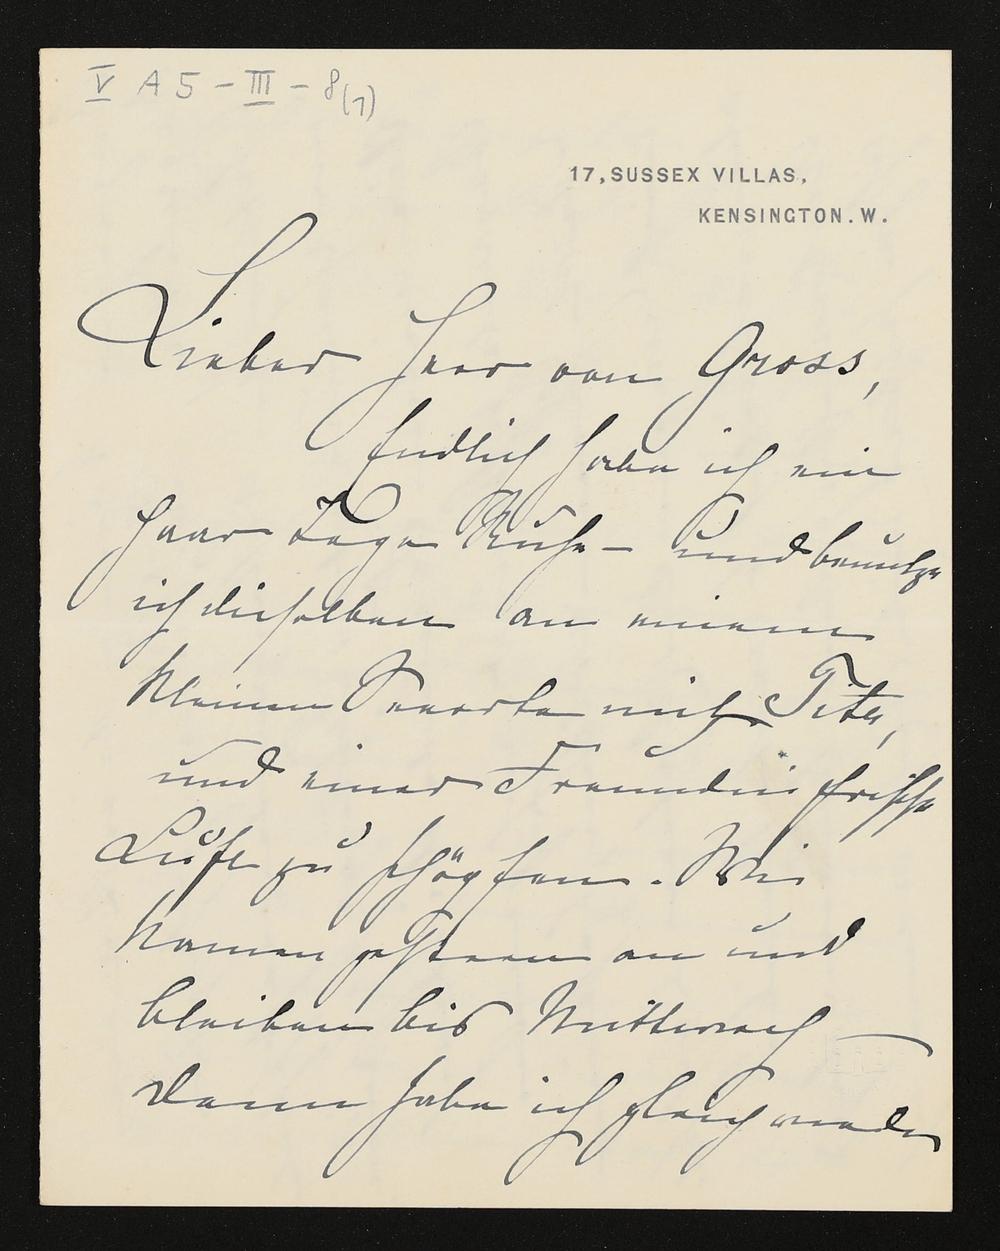 V A 5 - III - 8(1)
17, SUSSEX VILLAS,
KENSINGTON. W.
Lieber Herr von Gross,
Endlich habe ich ein
paar Tage Ruhe – und benutze
ich dieselben an einem
kleinen Seeorte mit Tita,
und einer Freundin frische
Luft zu schöpfen. Wir
kamen gestern an und
bleiben bis Mittwoch –
dann habe ich gleich wieder